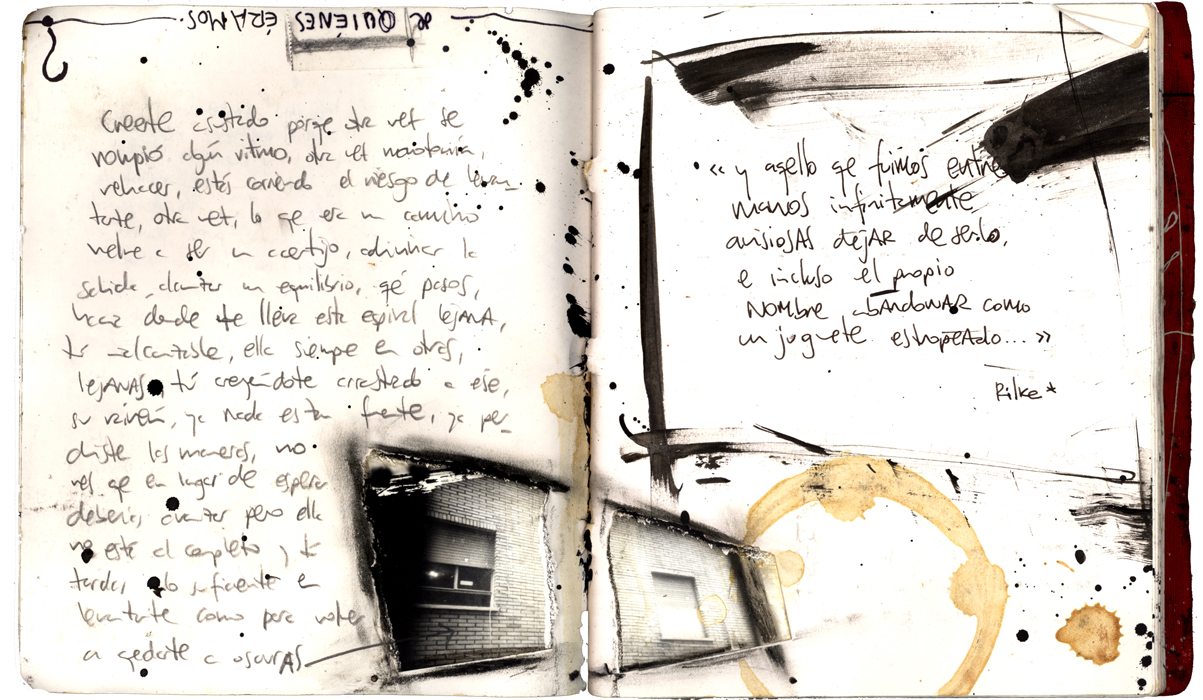 de QUIÉNES ÉRAMOS.
Creerte arrastrado porqe otra vez se
rompió algún ritmo, otra vez monotonía,
rehaces, estás corriendo el riesgo de levan_
tarte, otra vez, lo qe era un camino
vuelve a ser un acertijo, adivinar la
salida, alcanzar un equilibrio, qé pasos,
hacia donde te lleva esta espiral LEJANA,
tú inalcanzable, ella siempre en otros,
LEJANAS, tú creyéndote arrastrado a ese,
su vaivén, ya nada está en frente, ya per_
diste las maneras, no
ves qe en lugar de esperar
deberías avanzar pero ella
no está al completo y tú
tardas lo suficiente en
levantarte como para volver
a qedarte a oscurAS
« y aqello qe fuimos entre
manos infinitamente
ansiosAs dejAR de serlo,
e incluso el propio
NOMBRE abANDONAR como
un juguete estropeAdo... »
Rilke*